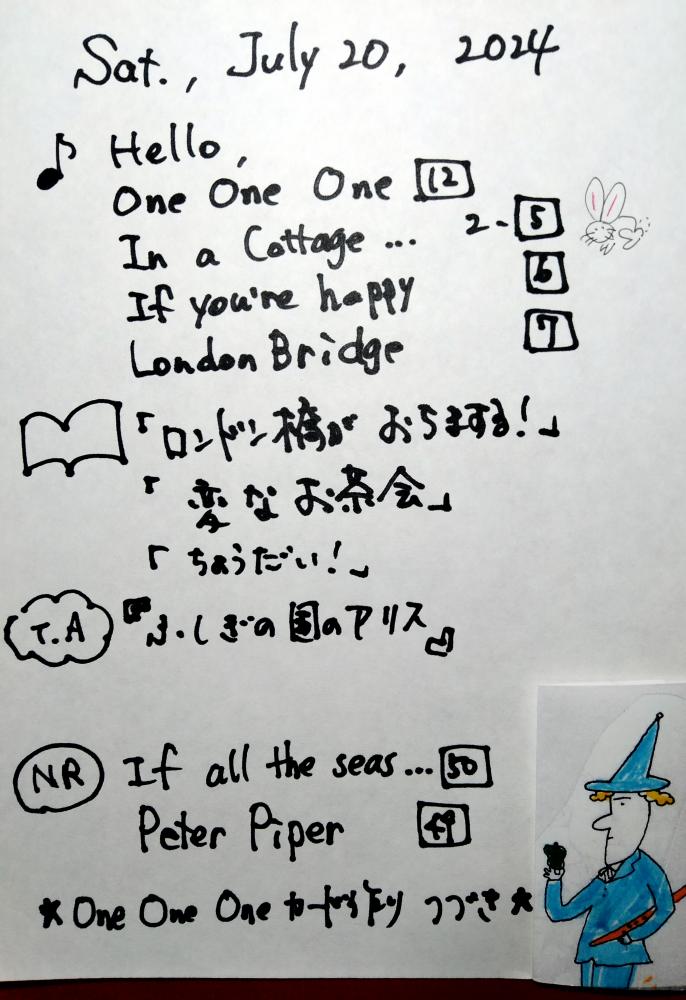 Sat., July 20, 2024
Hello,
One One One 12
In a Cottage ... 2-5
If you're happy 6
London Bridge 7
「ロンドン橋がおちまする!」
「変なお茶会」
「ちょうだい!」
T.A 『ふしぎの国のアリス』
NR If all the seas... 50
Peter Piper 49
*One One One カード作り つづき*